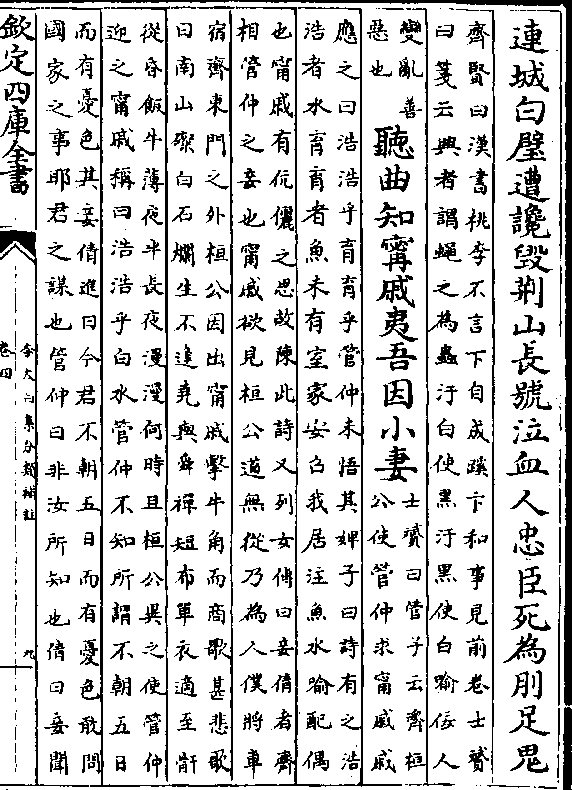 連城白璧遭讒毀荆山長號泣血人忠臣死為刖足鬼
齊賢曰漢書桃李不言下自成蹊卞和事見前卷士贇
曰箋云興者謂蠅之為蟲汙白使黑汙黑使白喻佞人
變亂善
惡也
聽曲知甯戚夷吾因小妻
士贇曰管子云齊桓
公使管仲求甯戚戚
應之曰浩浩乎育育乎管仲未悟其婢子曰詩有之浩
浩者水育育者魚未有室家安召我居注魚水喻配偶
也甯戚有伉儷之思故陳此詩又列女傳曰妾倩者齊
相管仲之妾也甯戚欲見桓公道無從乃為人僕將車
宿齊東門之外桓公因出甯戚擊牛角而商歌甚悲歌
曰南山礫白石爛生不逢堯與舜禪短布單衣適至骭
從昏飯牛薄夜半長夜漫漫何時旦桓公異之使管仲
迎之甯戚稱曰浩浩乎白水管仲不知所謂不朝五日
而有憂色其妾倩進曰今君不朝五日而有憂色敢問
國家之事耶君之謀也管仲曰非汝所知也倩曰妾聞
欽定四庫全書
卷四
李太白集分類補註
九